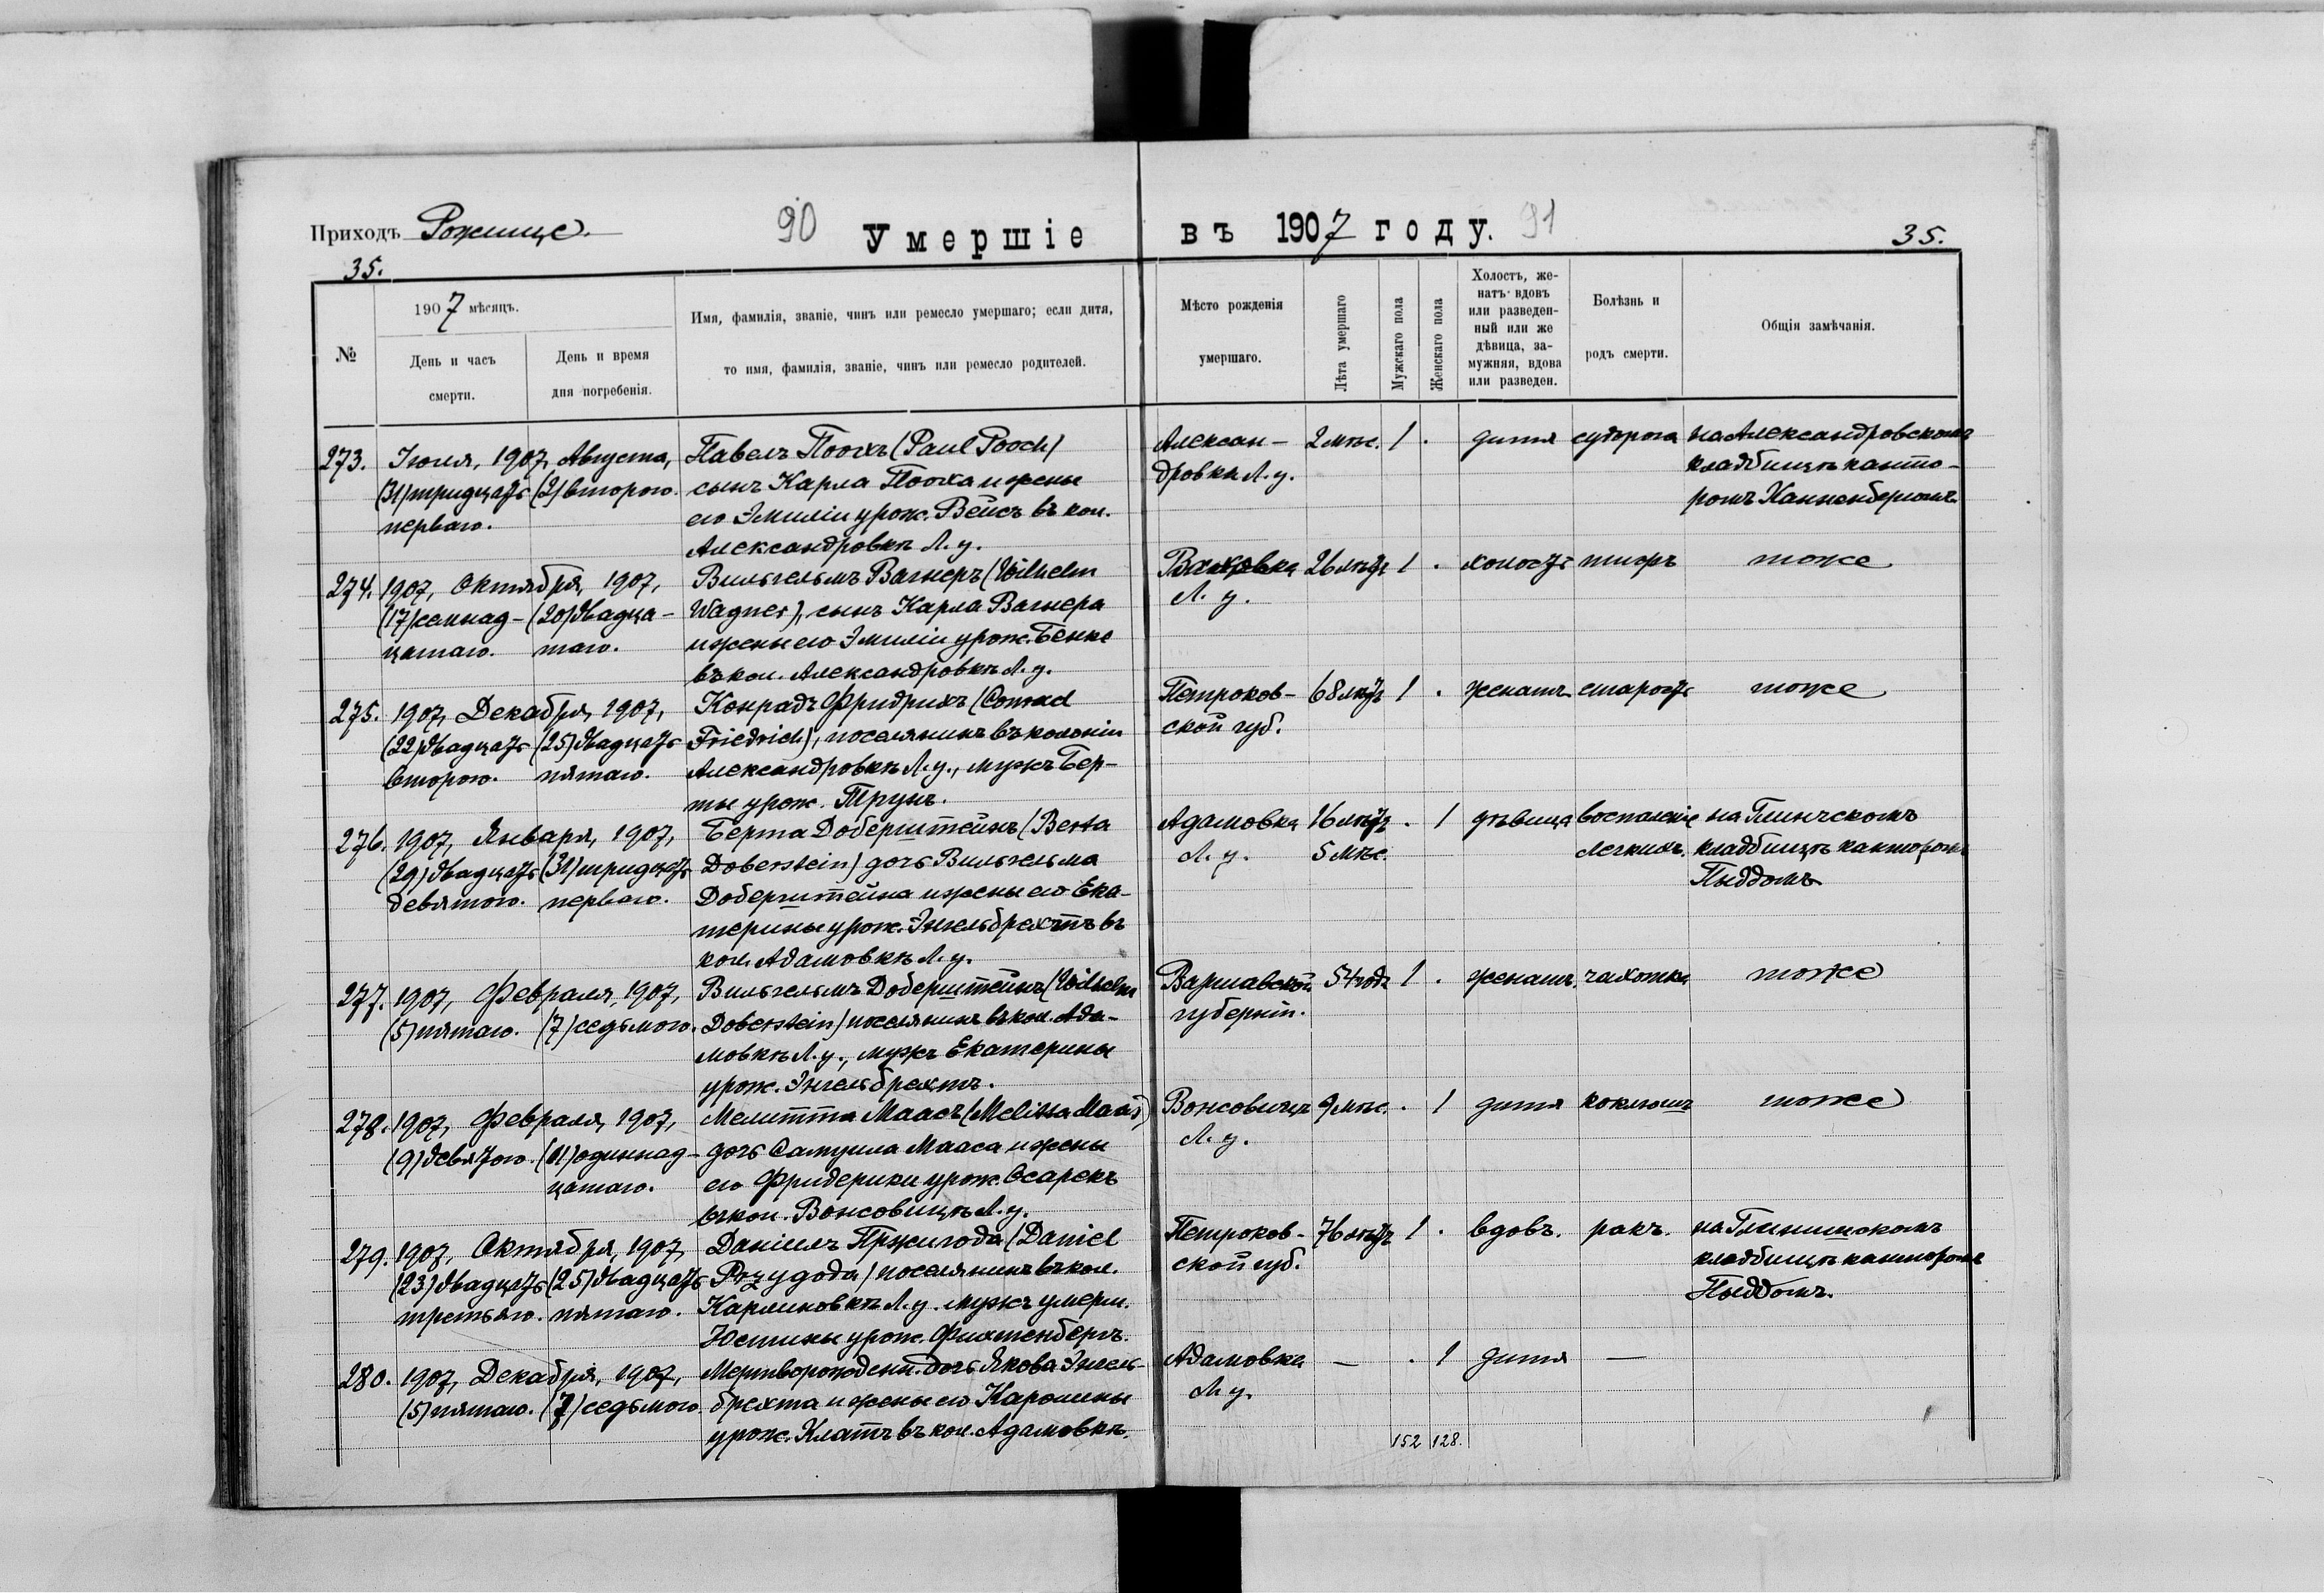 Приходъ Рожище.
90
Умершіе
въ 1907 году.
91
35.
35.
№
1907 мѣсяцъ.
День и часъ
смерти.
День и время
дня погребенія.
Имя, фамилія, званіе, чинъ или ремесло умершаго; если дитя,
то имя, фамилія, званіе, чинъ или ремесло родителей.
Мѣсто рожденія
умершаго.
Лѣта умершаго
Мужскаго пола
Женскаго пола
Холостъ, же-
натъ вдовъ
или разведен-
ный или же
дѣвица, за-
мужняя, вдова
или разведен.
Болѣзнь и
родъ смерти.
Общія замѣчанія.
273. Іюля, 1907, Августа, Павелъ Поохъ (Paul Pooch) Алексан- 2 мѣс. 1 . дитя судорога на Александровскомъ
(31) тридцать (2) второго. сынъ Карла Пооха и жены дровка Л. у. кладбищѣ канто-
перваго. его Эмиліи урож. Вейсъ въ кол. ромъ Ханненбергомъ.
Александровкѣ Л. у.
274. 1907, Октября, 1907, Вильгельмъ Вагнеръ (Wilhelm Вахровка 26 лѣтъ 1 . холостъ тифъ тоже
(17) семнад- (20) двадца- Wagner), сынъ Карла Вагнера Л. у.
цатаго. таго. и жены его Эмиліи урож. Бенке
въ кол. Александровкѣ Л. у.
275. 1907, Декабря, 1907, Конрадъ Фридрихъ (Conrad Петроков- 68 лѣтъ 1 . женатъ старость тоже
(22) двадцать (25) двадцать Friedrich), поселянинъ въ колоніи ской губ.
второго. пятаго. Александровкѣ Л. у., мужъ Бер-
ты урож. Трунъ.
276. 1907, Января, 1907, Берта Доберштейнъ (Berta Адамовка 16 лѣтъ . 1 дѣвица воспаленіе на Глинческомъ
(29) двадцать (31) тридцать Doberstein) дочь Вильгельма Л. у. 5 мѣс. легкихъ. кладбищѣ канторомъ
девятого. перваго. Доберштейна и жены его Ека- Пыддомъ
терины урож. Энгельбрехтъ въ
кол. Адамовкѣ Л. у.
277. 1907, Февраля, 1907, Вильгельмъ Доберштейнъ (Wilhelm Варшавской 54 года 1 . женатъ. чахотка тоже
(5) пятаго. (7) седьмого. Doberstein) поселянинъ въ кол. Ада- губерніи.
мовкѣ Л. у., мужъ Екатерины
урож. Энгельбрехтъ.
278. 1907, Февраля, 1907, Мелитта Маасъ (Melitta Maas) Вонсовичи 9 мѣс. . 1 дитя коклюшъ тоже
(9) девятого. (11) одиннад- дочь Самуила Мааса и жены Л. у.
цатаго. его Фридерики урож. Осарекъ
въ кол. Вонсовицѣ Л. у.
279. 1907, Октября, 1907, Даніилъ Пржигода (Daniel Петроков- 76 лѣтъ 1 . вдовъ. ракъ. на Глинишскомъ
(23) двадцать (25) двадцать Przygoda) поселянинъ въ кол. ской губ. кладбищѣ канторомъ
третьяго. пятаго. Карлиновкѣ Л. у. мужъ умерш. Пыддомъ.
Юстины урож. Фихтенбергъ.
280. 1907, Декабря, 1907, Мертворожденн. дочь Якова Энгель- Адамовка — . 1 дитя —
(5) пятаго. (7) седьмого брехта и жены его Каролины Л. у.
урож. Клаттъ въ кол. Адамовкѣ.
152 128.